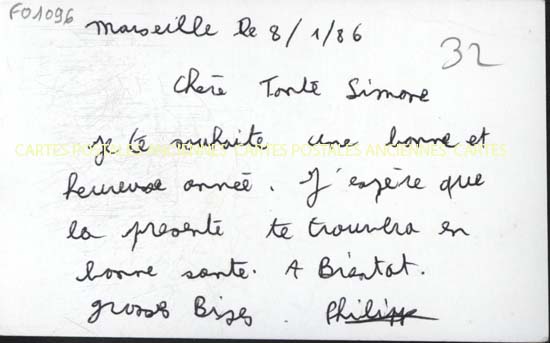 FO1096
Marseille le 8/1/86
32
Chère Tante Simone
je te souhaite une bonne et
CARTES POSTALES ANCIENNES CARTES POSTALES ANCIENNES CARTES
heureuse année. J'espère que
la presente te trouvera en
bonne sante. A Bientot.
grosses Bises. Philippe